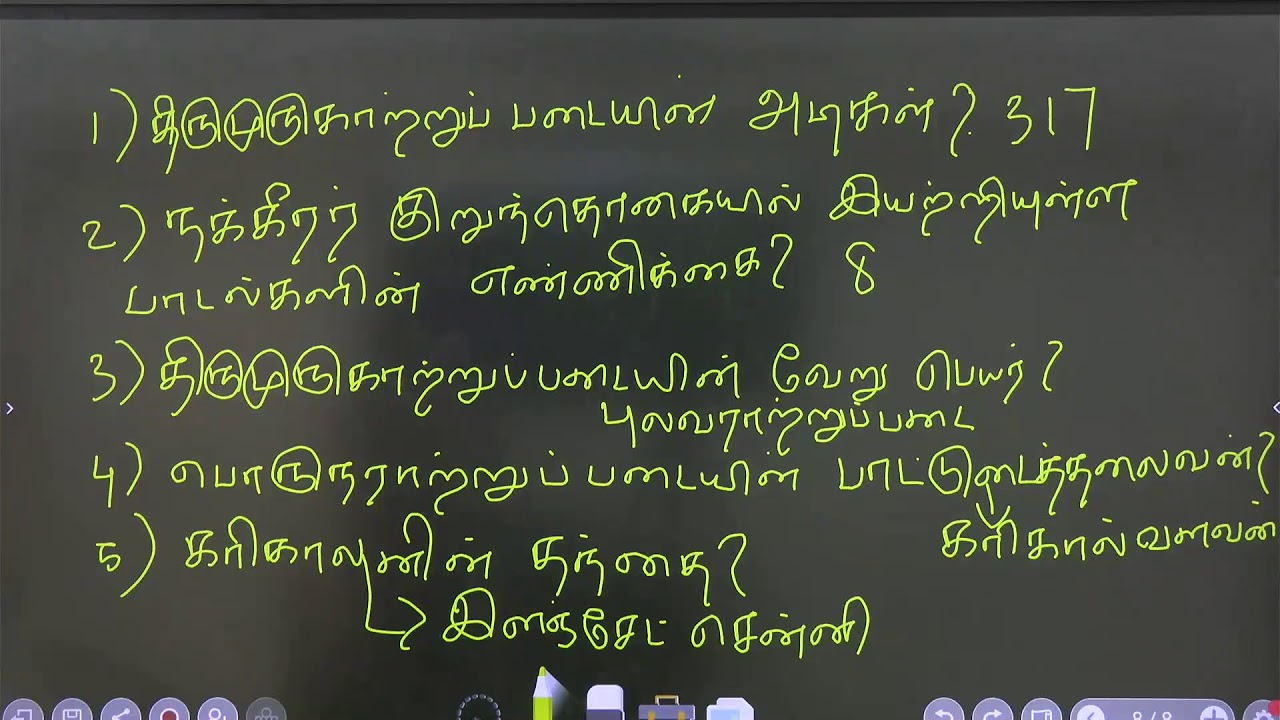 1) திருமுருகாற்றுப் படையின் அடிகள்? 317
2) நக்கீரர் குறுந்தொகையில் இயற்றியுள்ள
பாடல்களின் எண்ணிக்கை? 8
3) திருமுருகாற்றுப்படையின் வேறு பெயர்?
புலவராற்றுப்படை
4) பொருநராற்றுப் படையின் பாட்டுடைத்தலைவன்?
கரிகால்வளவன்
5) கரிகாலனின் தந்தை?
இளஞ்சேட் சென்னி